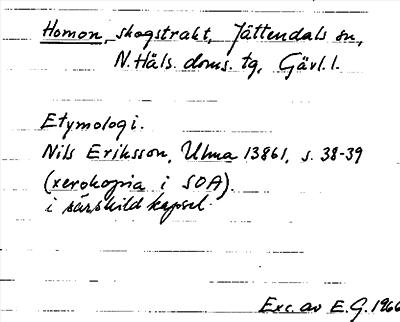 Homon, skogstrakt, Jättendals sn,
N. Häls. doms. tg, Gävl. l.
Etymologi.
Nils Eriksson, Ulma 13861, s. 38-39
(xerokopia i SOA)
i särskild kapsel.
Exc. av E. G. 1966